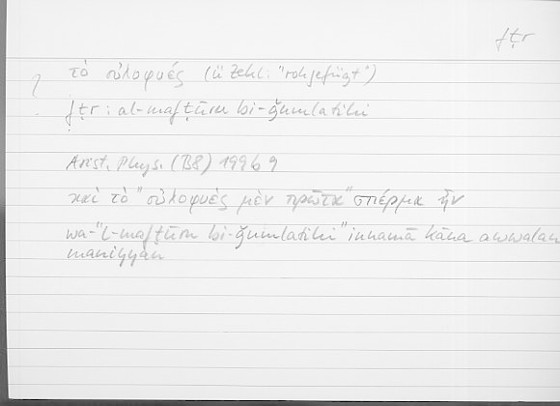 fṭr
? τὸ οὐλοφυές (Ü Zekl: "rohgefügt")
fṭr : al-mafṭūru bi-ǧumlatihi
Arist. Phys. (B8) 199b9
καὶ τὸ "οὐλοφυὲς μὲν πρῶτα" σπέρμα ἦν
wa-"l-mafṭūru bi-ǧumlatihi" innamā kāna awwalan
maniyyan